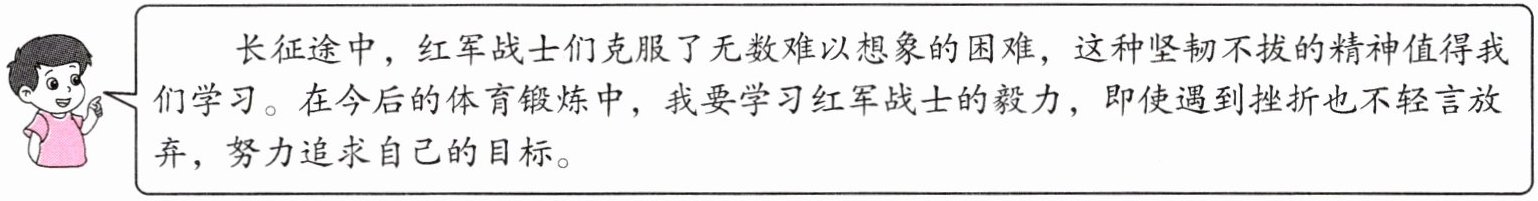 长征途中，红军战士们克服了无数难以想象的困难，这种坚韧不拔的精神值得我
们学习。在今后的体育锻炼中，我要学习红军战士的毅力，即使遇到挫折也不轻言放
弃，努力追求自己的目标。